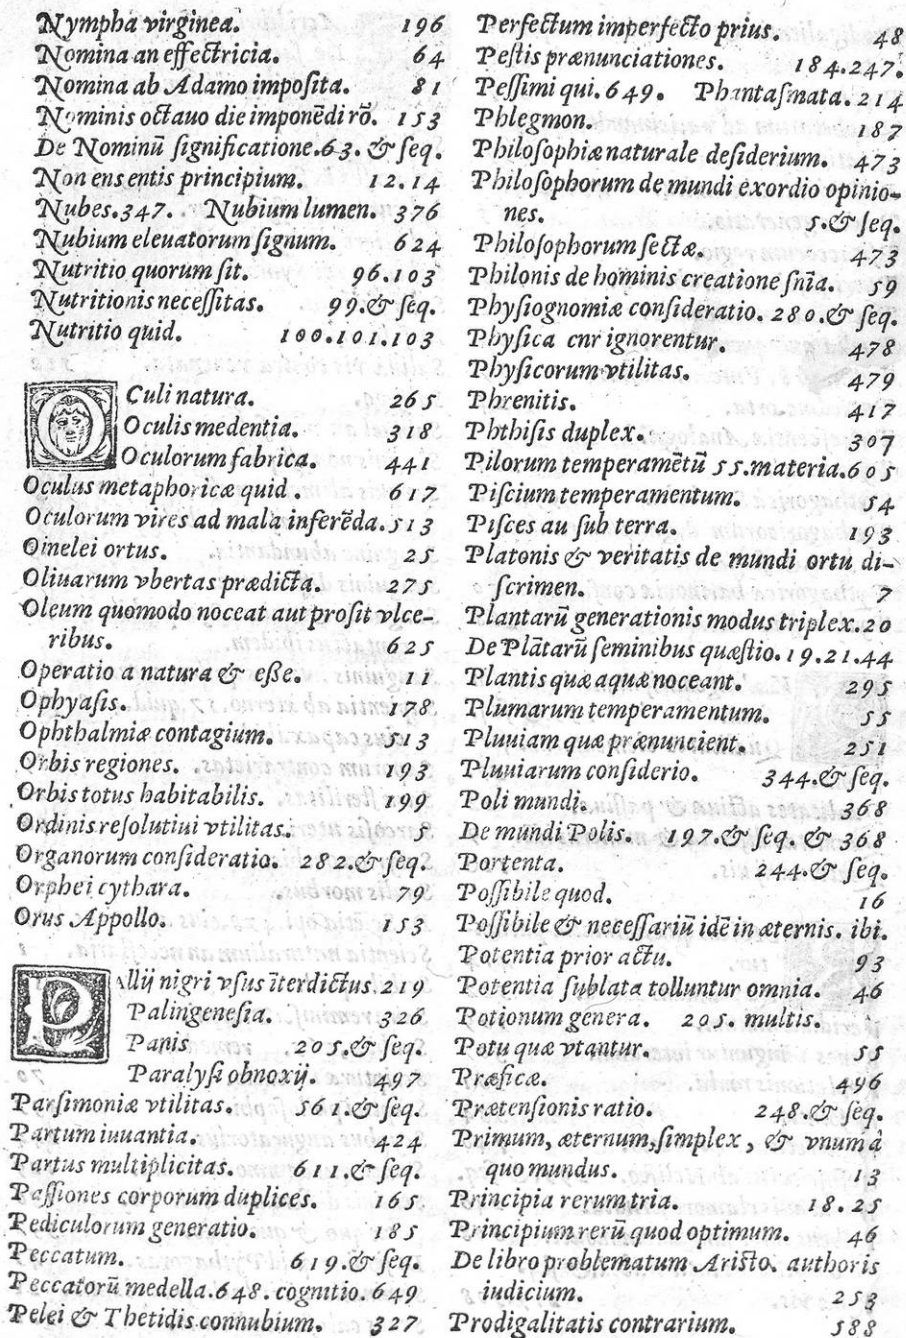 Nympha virginea. 196
Nomina an effectricia. 64
Nomina ab Adamo imposita. 81
Nominis octauo die imponēdi rō. 153
De Nominū significatione.63. & seq.
Non ens entis principium. 12.14
Nubes.347. Nubium lumen. 376
Nubium eleuatorum signum. 624
Nutritio quorum sit. 96.103
Nutritionis necessitas. 99.& seq.
Nutritio quid. 100.101.103
OCuli natura. 265
Oculis medentia. 318
Oculorum fabrica. 441
Oculus metaphoricæ quid. 617
Oculorum vires ad mala inferēda.513
Oinelei ortus. 25
Oliuarum vbertas prædicta. 275
Oleum quomodo noceat aut prosit vlce-
ribus. 625
Operatio a natura & esse. 11
Ophyasis. 178
Ophthalmiæ contagium. 513
Orbis regiones. 193
Orbis totus habitabilis. 199
Ordinis resolutiui vtilitas. 5
Organorum consideratio. 282.& seq.
Orphei cythara. 79
Orus Appollo. 153
PAllij nigri vsus īterdictus.219
Palingenesia. 326
Panis 205.& seq.
Paralysi obnoxij. 497
Parsimoniæ vtilitas. 561.& seq.
Partum iuuantia. 424
Partus multiplicitas. 611.& seq.
Passiones corporum duplices. 165
Pediculorum generatio. 185
Peccatum. 619.& seq.
Peccatorū medella.648. cognitio.649
Pelei & Thetidis connubium. 327
Perfectum imperfecto prius. 48
Pestis prænunciationes. 184.247.
Pessimi qui.649. Phantasmata.214
Phlegmon. 187
Philosophiæ naturale desiderium. 473
Philosophorum de mundi exordio opinio-
nes. 5.& seq.
Philosophorum sectæ. 473
Philonis de hominis creatione snīa. 59
Physiognomiæ consideratio. 280.& seq.
Physica cnr ignorentur. 478
Physicorum vtilitas. 479
Phrenitis. 417
Phthisis duplex. 307
Pilorum temperamētū 55.materia.605
Piscium temperamentum. 54
Pisces au sub terra. 193
Platonis & veritatis de mundi ortu di-
scrimen. 7
Plantarū generationis modus triplex.20
De Plātarū seminibus quæstio.19.21.44
Plantis quæ aquæ noceant. 295
Plumarum temperamentum. 55
Pluuiam quæ prænuncient. 251
Pluuiarum considerio. 344.& seq.
Poli mundi. 368
De mundi Polis. 197.& seq. & 368
Portenta. 244.& seq.
Possibile quod. 16
Possibile & necessariū idē in æternis. ibi.
Potentia prior actu. 93
Potentia sublata tolluntur omnia. 46
Potionum genera. 205. multis.
Potu quæ vtantur. 55
Præficæ. 496
Prætensionis ratio. 248.& seq.
Primum, æternum,simplex, & vnum à
quo mundus. 13
Principia rerum tria. 18.25
Principium rerū quod optimum. 46
De libro problematum Aristo. authoris
iudicium. 253
Prodigalitatis contrarium. 588